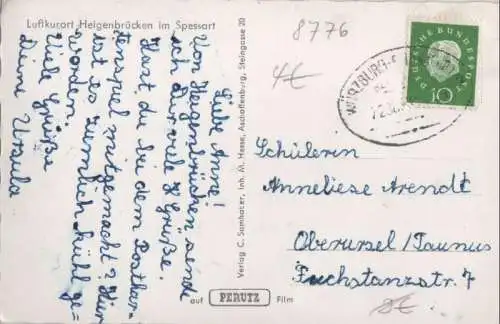 Luftkurort Heigenbrücken im Spessart
Liebe Anne!
Von Heigenbrücken sende
ich Dir viele Grüße.
Hast du bei dem Postkar-
tenspiel mitgemacht? Hier
ist es ziemlich kühl ge-
worden.
Viele Grüße
Deine Ursula
Verlag C. Samhaber, Inh. M. Hesse, Aschaffenburg, Steingasse 20
auf PERUTZ Film
8776
4€
WÜRZBURG
DEUTSCHE BUNDESPOST
10
Schülerin
Anneliese Arendt
Oberursel/Taunus
Fuchstanzstr. 7